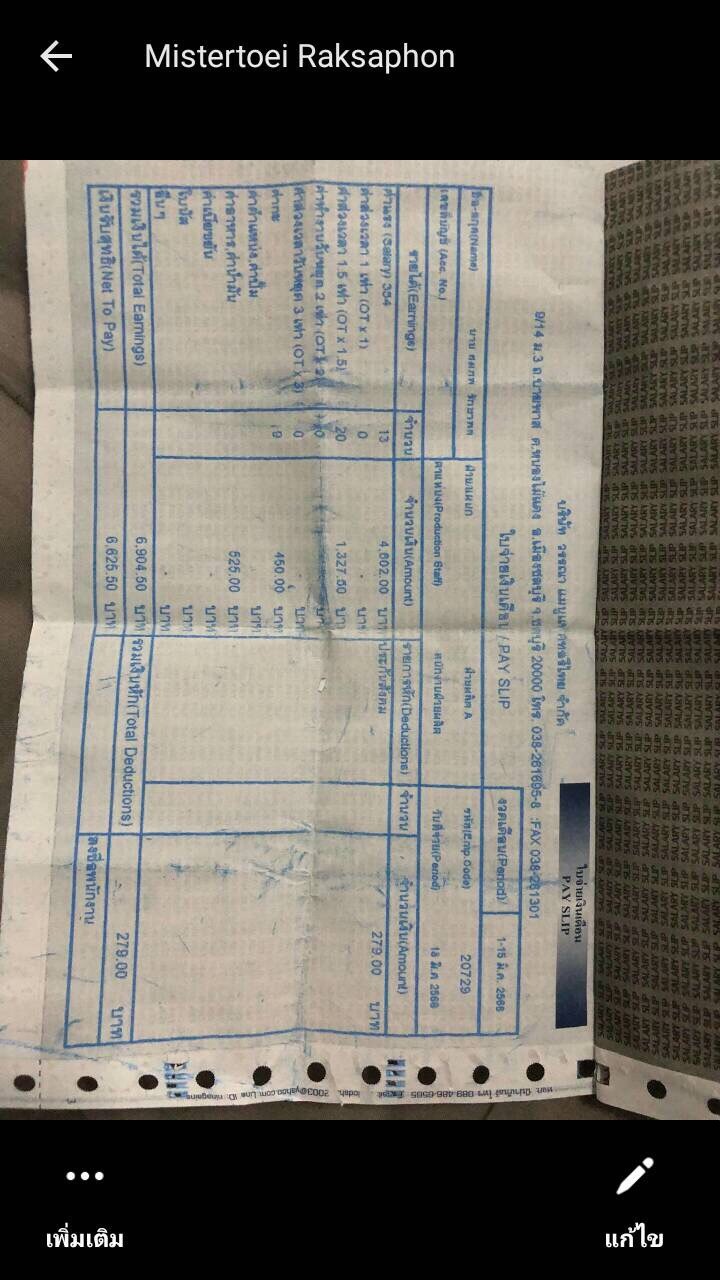 Mistertoei Raksaphon
ใบจ่ายเงินเดือน
PAY SLIP
บริษัท วรรณา จำกัด
9/14 ม.3 ต.หนองไม้แดง อ.เมืองชลบุรี จ.ชลบุรี 20000 โทร. 038-261695-8 :FAX 038-261301
ใบจ่ายเงินเดือน / PAY SLIP
งวดเดือน(Period)/ 1-15 มี.ค. 2568
ชื่อ-สกุล(Name) นาย ฝ่าย/แผนก ฝ่ายผลิต A รหัส(Emp.Code) 20729
เลขที่บัญชี (Acc. No.) ตำแหน่ง(Production Staff) พนักงานฝ่ายผลิต วันที่จ่าย(Period) 18 มี.ค. 2568
รายได้(Earnings) จำนวน จำนวนเงิน(Amount) รายการหัก(Deductions) จำนวน จำนวนเงิน(Amount)
ค่าแรง (Salary) 354 13 4,602.00 บาท ประกันสังคม 279.00 บาท
ค่าล่วงเวลา 1 เท่า (OT x 1) 0 บาท
ค่าล่วงเวลา 1.5 เท่า (OT x 1.5) 20 1,327.50 บาท
ค่าทำงานวันหยุด 2 เท่า 0 บาท
ค่าล่วงเวลาวันหยุด 3 เท่า (OT x 3) 0 บาท
ค่ากะ 9 450.00 บาท
ค่าตำแหน่ง, บาท
ค่าอาหาร,ค่าน้ำมัน 525.00 บาท
ค่าเบี้ยขยัน บาท
บาท
อื่นๆ บาท
รวมเงินได้(Total Earnings) 6,904.50 บาท รวมเงินหัก(Total Deductions) 279.00 บาท
เงินรับสุทธิ(Net To Pay) 6,625.50 บาท ลงชื่อพนักงาน
SALARY SLIP
เพิ่มเติม
แก้ไข